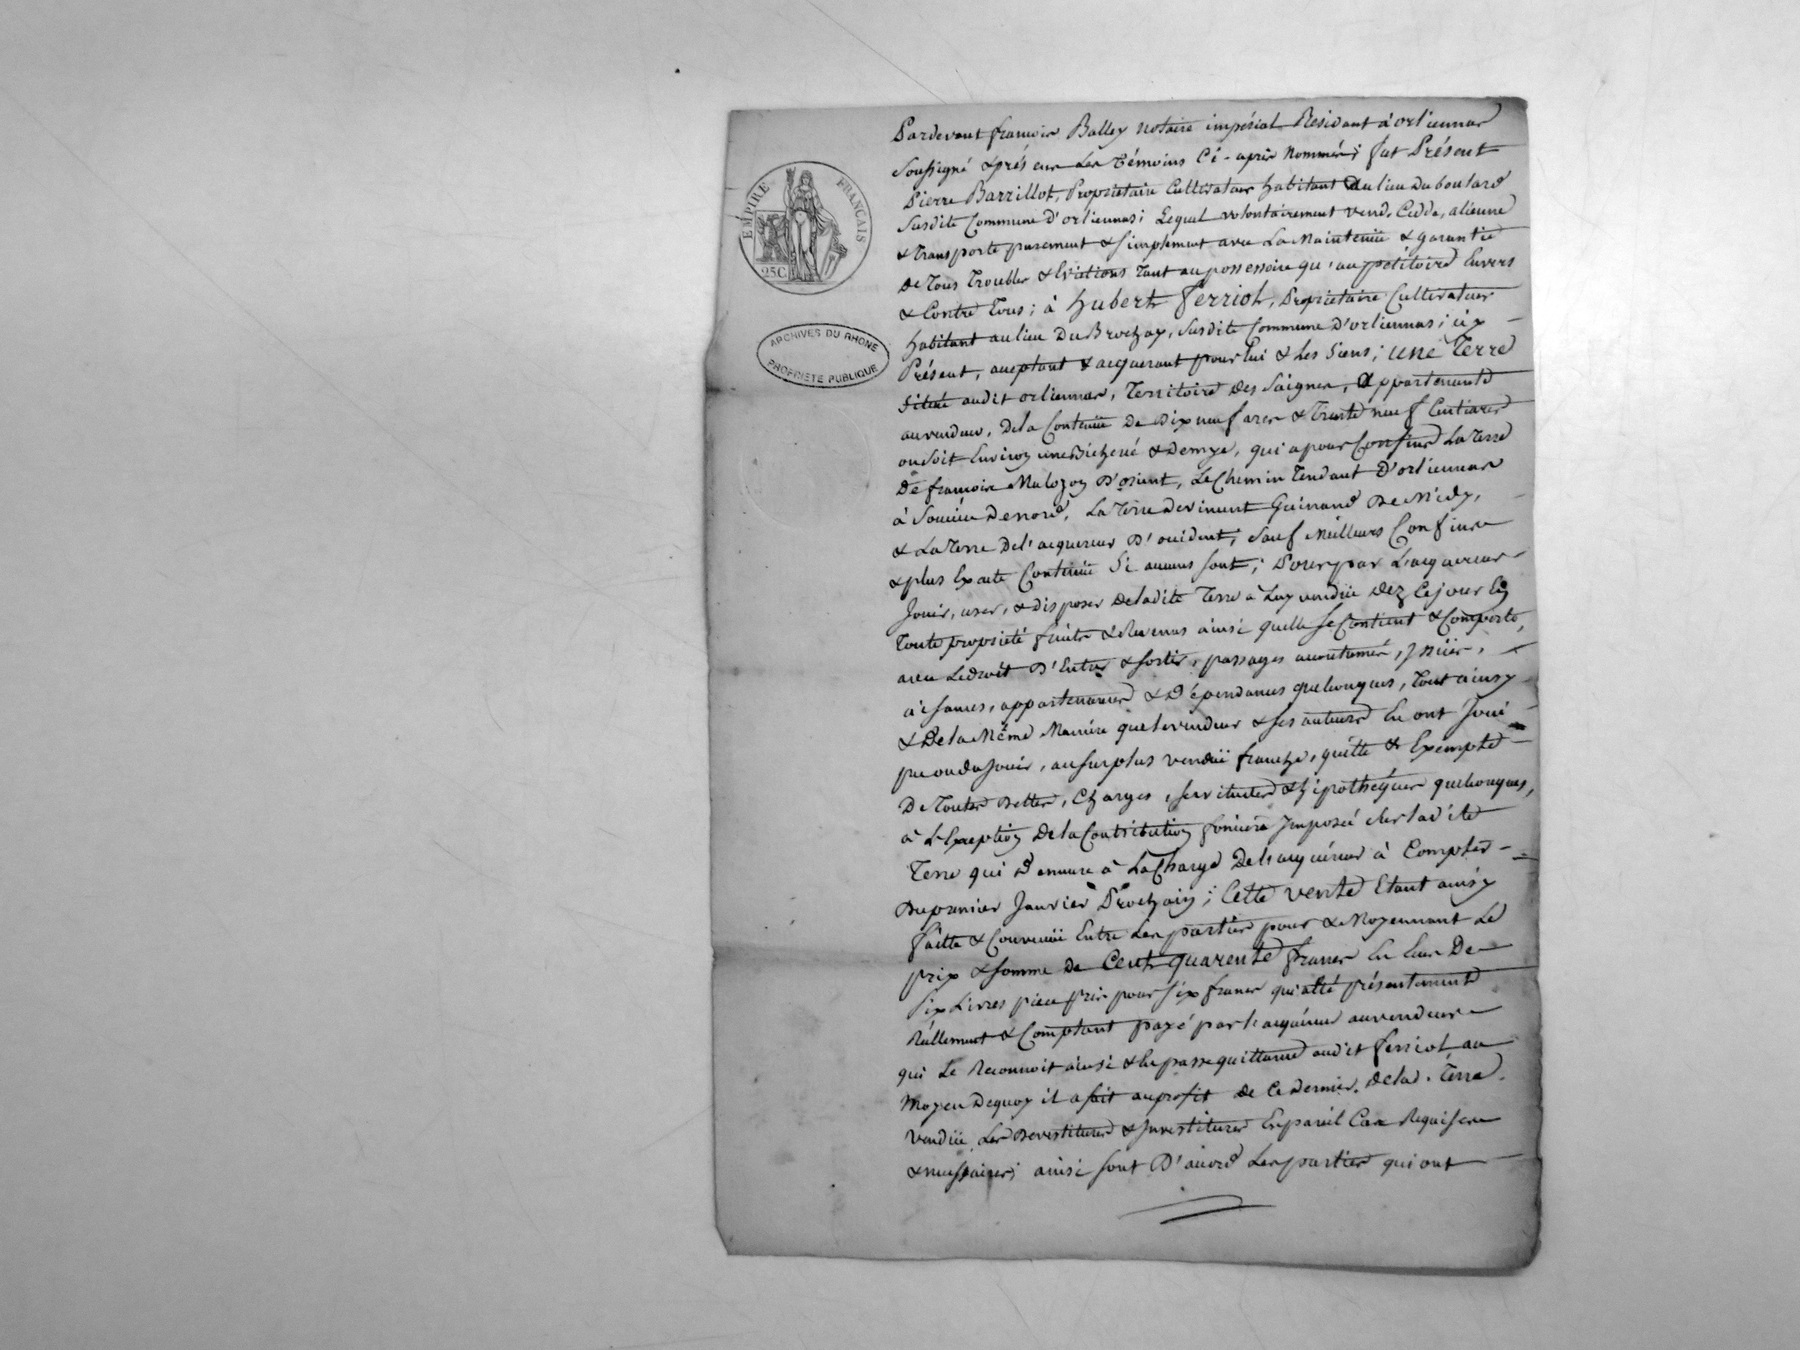 Pardevant françois Balley notaire impérial Résidant à orliennas
soussigné & présence des témoins ci-après nommés; fut Présent
Pierre Barrillot, Propriétaire Cultivateur habitant au lieu du boulard
susdite Commune d'orliennas; Lequel volontairement vend, Cedde, aliene
& transporte purement & simplement avec La Maintenüe & garantie
De Tous Troubles & Evictions tant au possessoire qu'au pétitoire Envers
& Contre Tous; à Hubert Ferriol, Propriétaire Cultivateur
habitant au lieu Du Brochay, susdite Commune D'orliennas; icy
Présent, aceptant & acquerant pour Lui & les Siens; une Terre
située audit orliennas, Territoire des Saignes, appartenante
au vendeur, De la Contenüe de Dix neuf ares & Trente neuf Centiares
ou soit Environ une Bicherée & Demye, qui a pour Confins La Terre
De françois D'orient, Le Chemin Tendant D'orliennas
à Soucieu De nord, La Terre de vincent Guinand De Midy,
& La Terre De l'acquereur D'occident, sauf Meilleurs Confins
& plus Exacte Contenüe Si aucuns sont; Pour par L'acquereur
Jouir, user, & disposer De ladite Terre a Luy vendüe Dez Ce jour En
Toute propriété fruits & Revenus ainsi quelle se Contient & Comporte,
avec Le droit D'Entrer & sortir, passages accoutumés, Issües,
aisances, appartenances & Dépendances quelconques, Tout ainsy
& De la Même Manière que le vendeur & ses auteurs En ont Joui
pu ou du Jouir, au surplus vendüe franche, quitte & Exempte
De Toutes Dettes, Charges, servitudes & hipothéques quelconques,
à L'Exeption De la Contribution foncière Imposée sur ladite
Terre qui Demeure à La Charge De l'acquéreur à Compter
Du premier Janvier Prochain; Cette vente Etant ainsy
faitte & Convenüe Entre Les parties pour & Moyennant Le
prix & somme de Cent quarente francs En Ecus De
Six Livres piece pris pour six francs qui a été présentement
Réellement & Comptant payé par l'acquéreur au vendeur
qui Le Reconnoit ainsi & En passe quittance audit ferriol au
Moyen Dequoy il a fait au profit de Ce Dernier, De lad. Terre
Vendüe Les Devestitures & Investitures En pareil Cas Requises
& necessaires; ainsi sont D'accord Les parties qui ont
EMPIRE FRANÇAIS
25 C
ARCHIVES DU RHONE
PROPRIETE PUBLIQUE